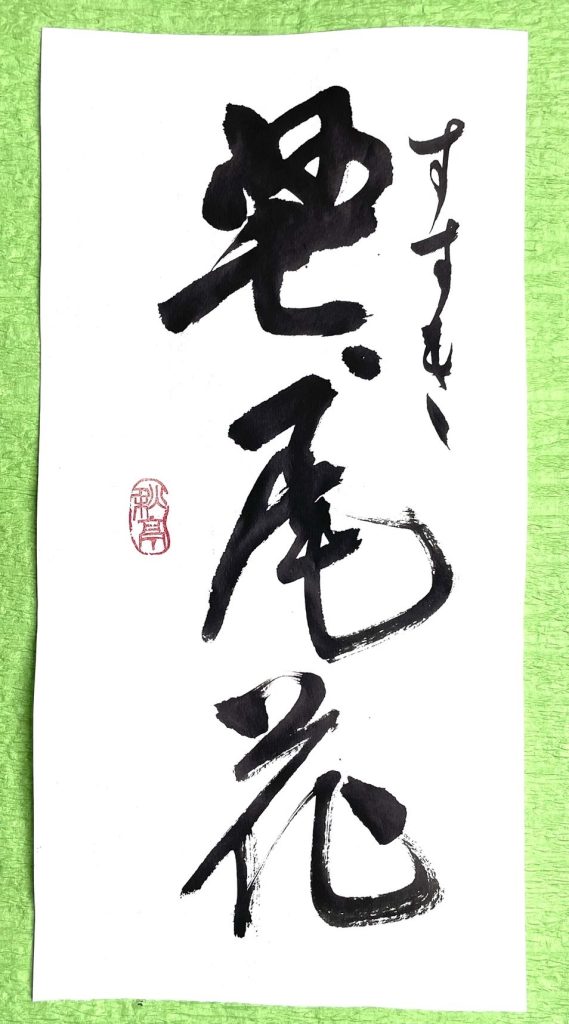 すすき、
芒、尾花
秋亭